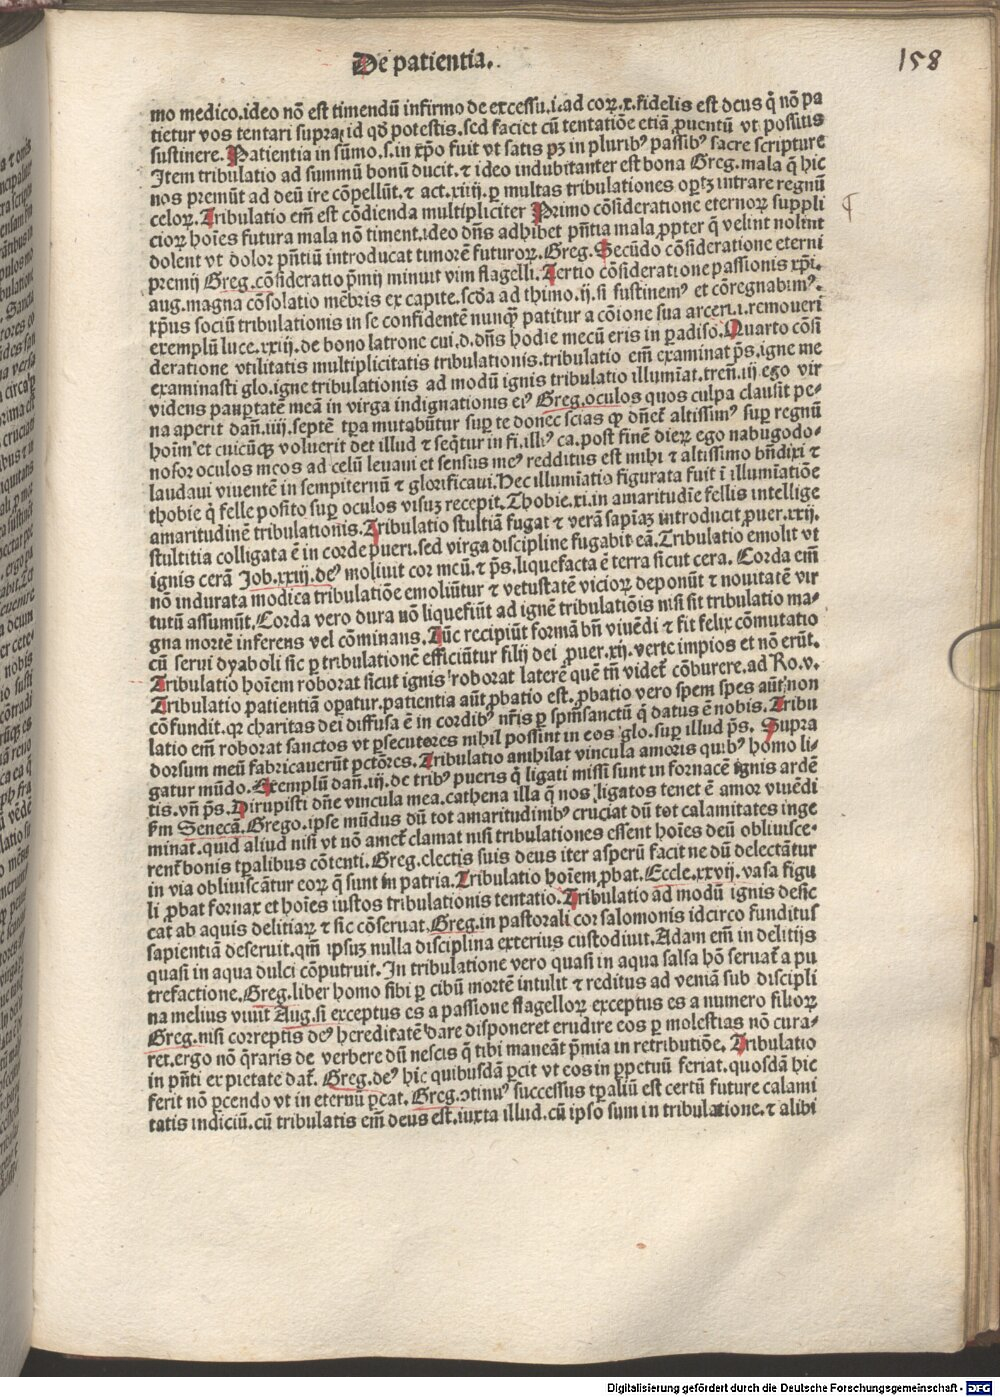 De patientia.
158
mo medico.ideo nõ est timendũ infirmo de excessu.i.ad coꝝ.x.fidelis est deus q̃ nõ pa
tietur vos tentari supra id qđ potestis.sed faciet cũ tentatiõe etiã ꝓuentũ vt possitis
sustinere. Patientia in sũmo.s.in xp̃o fuit vt satis pꝫ in pluribꝰ passibꝰ sacre scripture
Item tribulatio ad summũ bonũ ducit.⁊ ideo indubitanter est bona Greg.mala q̃ hic
nos premũt ad deũ ire cõpellũt.⁊ act.xiiij.ꝑ multas tribulationes oportꝫ intrare regnũ
celoꝝ. Tribulatio em̃ est cõdienda multipliciter Primo cõsideratione eternoꝝ suppli
cioꝝ hoĩes futura mala nõ timent.ideo dñs adhibet pñtia mala ꝓpter q̃ velint nolint
dolent vt dolor pñtiũ introducat timorẽ futuroꝝ. Greg. Secũdo cõsideratione eterni
premij Greg.cõsideratio p̃mij minuit vim flagelli. Tertio cõsideratione passionis xp̃i.
aug.magna cõsolatio mẽbris ex capite.scđa ad thimo.ij.si sustinemꝰ et cõregnabimꝰ.
xp̃us sociũ tribulationis in se confidentẽ nunqꝫ patitur a cõione sua arceri.i.remoueri
exemplũ luce.xxiij.de bono latrone cui.d.dñs hodie mecũ eris in padiso. Quarto cõsi
deratione vtilitatis multiplicitatis tribulationis.tribulatio em̃ examinat p̃s.igne me
examinasti glo.igne tribulationis ad modũ ignis tribulatio illumĩat.tren̄.iij ego vir
videns paupertatẽ meã in virga indignationis eiꝰ Greg.oculos quos culpa clausit pe-
na aperit dañ.iiij.septẽ tꝑa mutabũtur suꝑ te donec scias ꝙ dñet̃ altissimꝰ suꝑ regnũ
hoĩm et cuicũqꝫ voluerit det illud ⁊ seq̃tur in fi.illiꝰ ca.post finẽ dierꝝ ego nabugodo-
nosor oculos meos ad celũ leuaui et sensus meꝰ redditus est mihi ⁊ altissimo bñdixi ⁊
laudaui viuentẽ in sempiternũ ⁊ glorificaui.Hec illumĩatio figurata fuit ĩ illumĩatiõe
thobie q̃ felle posito suꝑ oculos visuꝫ recepit.Thobie.xi.in amaritudĩe fellis intellige
amaritudinẽ tribulationis. Tribulatio stultiã fugat ⁊ verã sapĩaꝫ introducit ꝓuer.xxij.
stultitia colligata ẽ in corde pueri.sed virga discipline fugabit eã.Tribulatio emolit vt
ignis cerã Job.xxiij.deꝰ moliuit cor meũ.⁊ p̃s.liquefacta ẽ terra sicut cera. Corda em̃
nõ indurata modica tribulatiõe emoliũtur ⁊ vetustatẽ vicioꝝ deponũt ⁊ nouitatẽ vir
tutũ assumũt.Corda vero dura nõ liquefiũt ad ignẽ tribulatiõis nisi sit tribulatio ma-
gna mortẽ inferens vel cõminans. Tũc recipiũt formã bñ viuẽdi ⁊ fit felix cõmutatio
cũ serui dyaboli sic ꝑ tribulationẽ efficiũtur filij dei ꝓuer.xij.verte impios et nõ erũt.
Tribulatio hoĩem roborat sicut ignis roborat laterẽ quẽ tñ videt̃ cõburere.ad Ro.v.
Tribulatio patientiã oꝑatur.patientia aũt ꝓbatio est.ꝓbatio vero spem spes aũt non
cõfundit.qꝛ charitas dei diffusa ẽ in cordibꝰ nr̃is ꝑ spm̃sanctũ q̃ datus ẽ nobis. Tribu
latio em̃ roborat sanctos vt ꝑsecutores nihil possint in eos glo.suꝑ illud p̃s. Supra
dorsum meũ fabricauerũt pctõres.Tribulatio anihilat vincula amoris quibꝰ homo li-
gatur mũdo. Exemplũ dañ.iij.de tribꝰ pueris q̃ ligati missi sunt in fornacẽ ignis ardẽ
tis.vñ p̃s. Dirupisti dñe vincula mea.cathena illa q̃ nos ligatos tenet ẽ amor viuẽdi
ẜm Senecã.Grego.ipse mũdus dũ tot amaritudinibꝰ cruciat dũ tot calamitates inge
minat.quid aliud nisi vt nõ amet̃ clamat nisi tribulationes essent hoĩes deũ obliuisce-
rent̃ bonis tꝑalibus cõtenti. Greg.electis suis deus iter asperũ facit ne dũ delectãtur
in via obliuiscãtur eoꝝ q̃ sunt in patria. Tribulatio hoĩem ꝓbat. Eccle.xxvij.vasa figu
li ꝓbat fornax et hoĩes iustos tribulationis tentatio. Tribulatio ad modũ ignis desic
cat ab aquis delitiaꝝ ⁊ sic cõseruat. Greg.in pastorali cor salomonis idcirco funditus
sapientiã deseruit.qm̃ ipsuꝫ nulla disciplina exterius custodiuit.Adam em̃ in delitijs
quasi in aqua dulci cõputruit.In tribulatione vero quasi in aqua salsa hõ seruat̃ a pu
trefactione.Greg.liber homo sibi ꝑ cibũ mortẽ intulit ⁊ reditus ad veniã sub discipli
na melius viuit Aug.si exceptus es a passione flagelloꝝ exceptus es a numero filioꝝ
Greg.nisi correptis deꝰ hereditatẽ dare disponeret erudire eos ꝑ molestias nõ cura-
ret.ergo nõ q̃raris de verbere dũ nescis q̃ tibi maneãt p̃mia in retributiõe. Tribulatio
in pñti ex pietate dat̃. Greg.deꝰ hic quibusdã ꝑcit vt eos in ꝑpetuũ feriat.quosdã hic
ferit nõ ꝑcendo vt in eternũ ꝑcat.Greg.ↄtinuꝰ successus tꝑaliũ est certũ future calami
tatis indiciũ.cũ tribulatis em̃ deus est.iuxta illud.cũ ipso sum in tribulatione.⁊ alibi
Digitalisierung gefördert durch die Deutsche Forschungsgemeinschaft - DFG